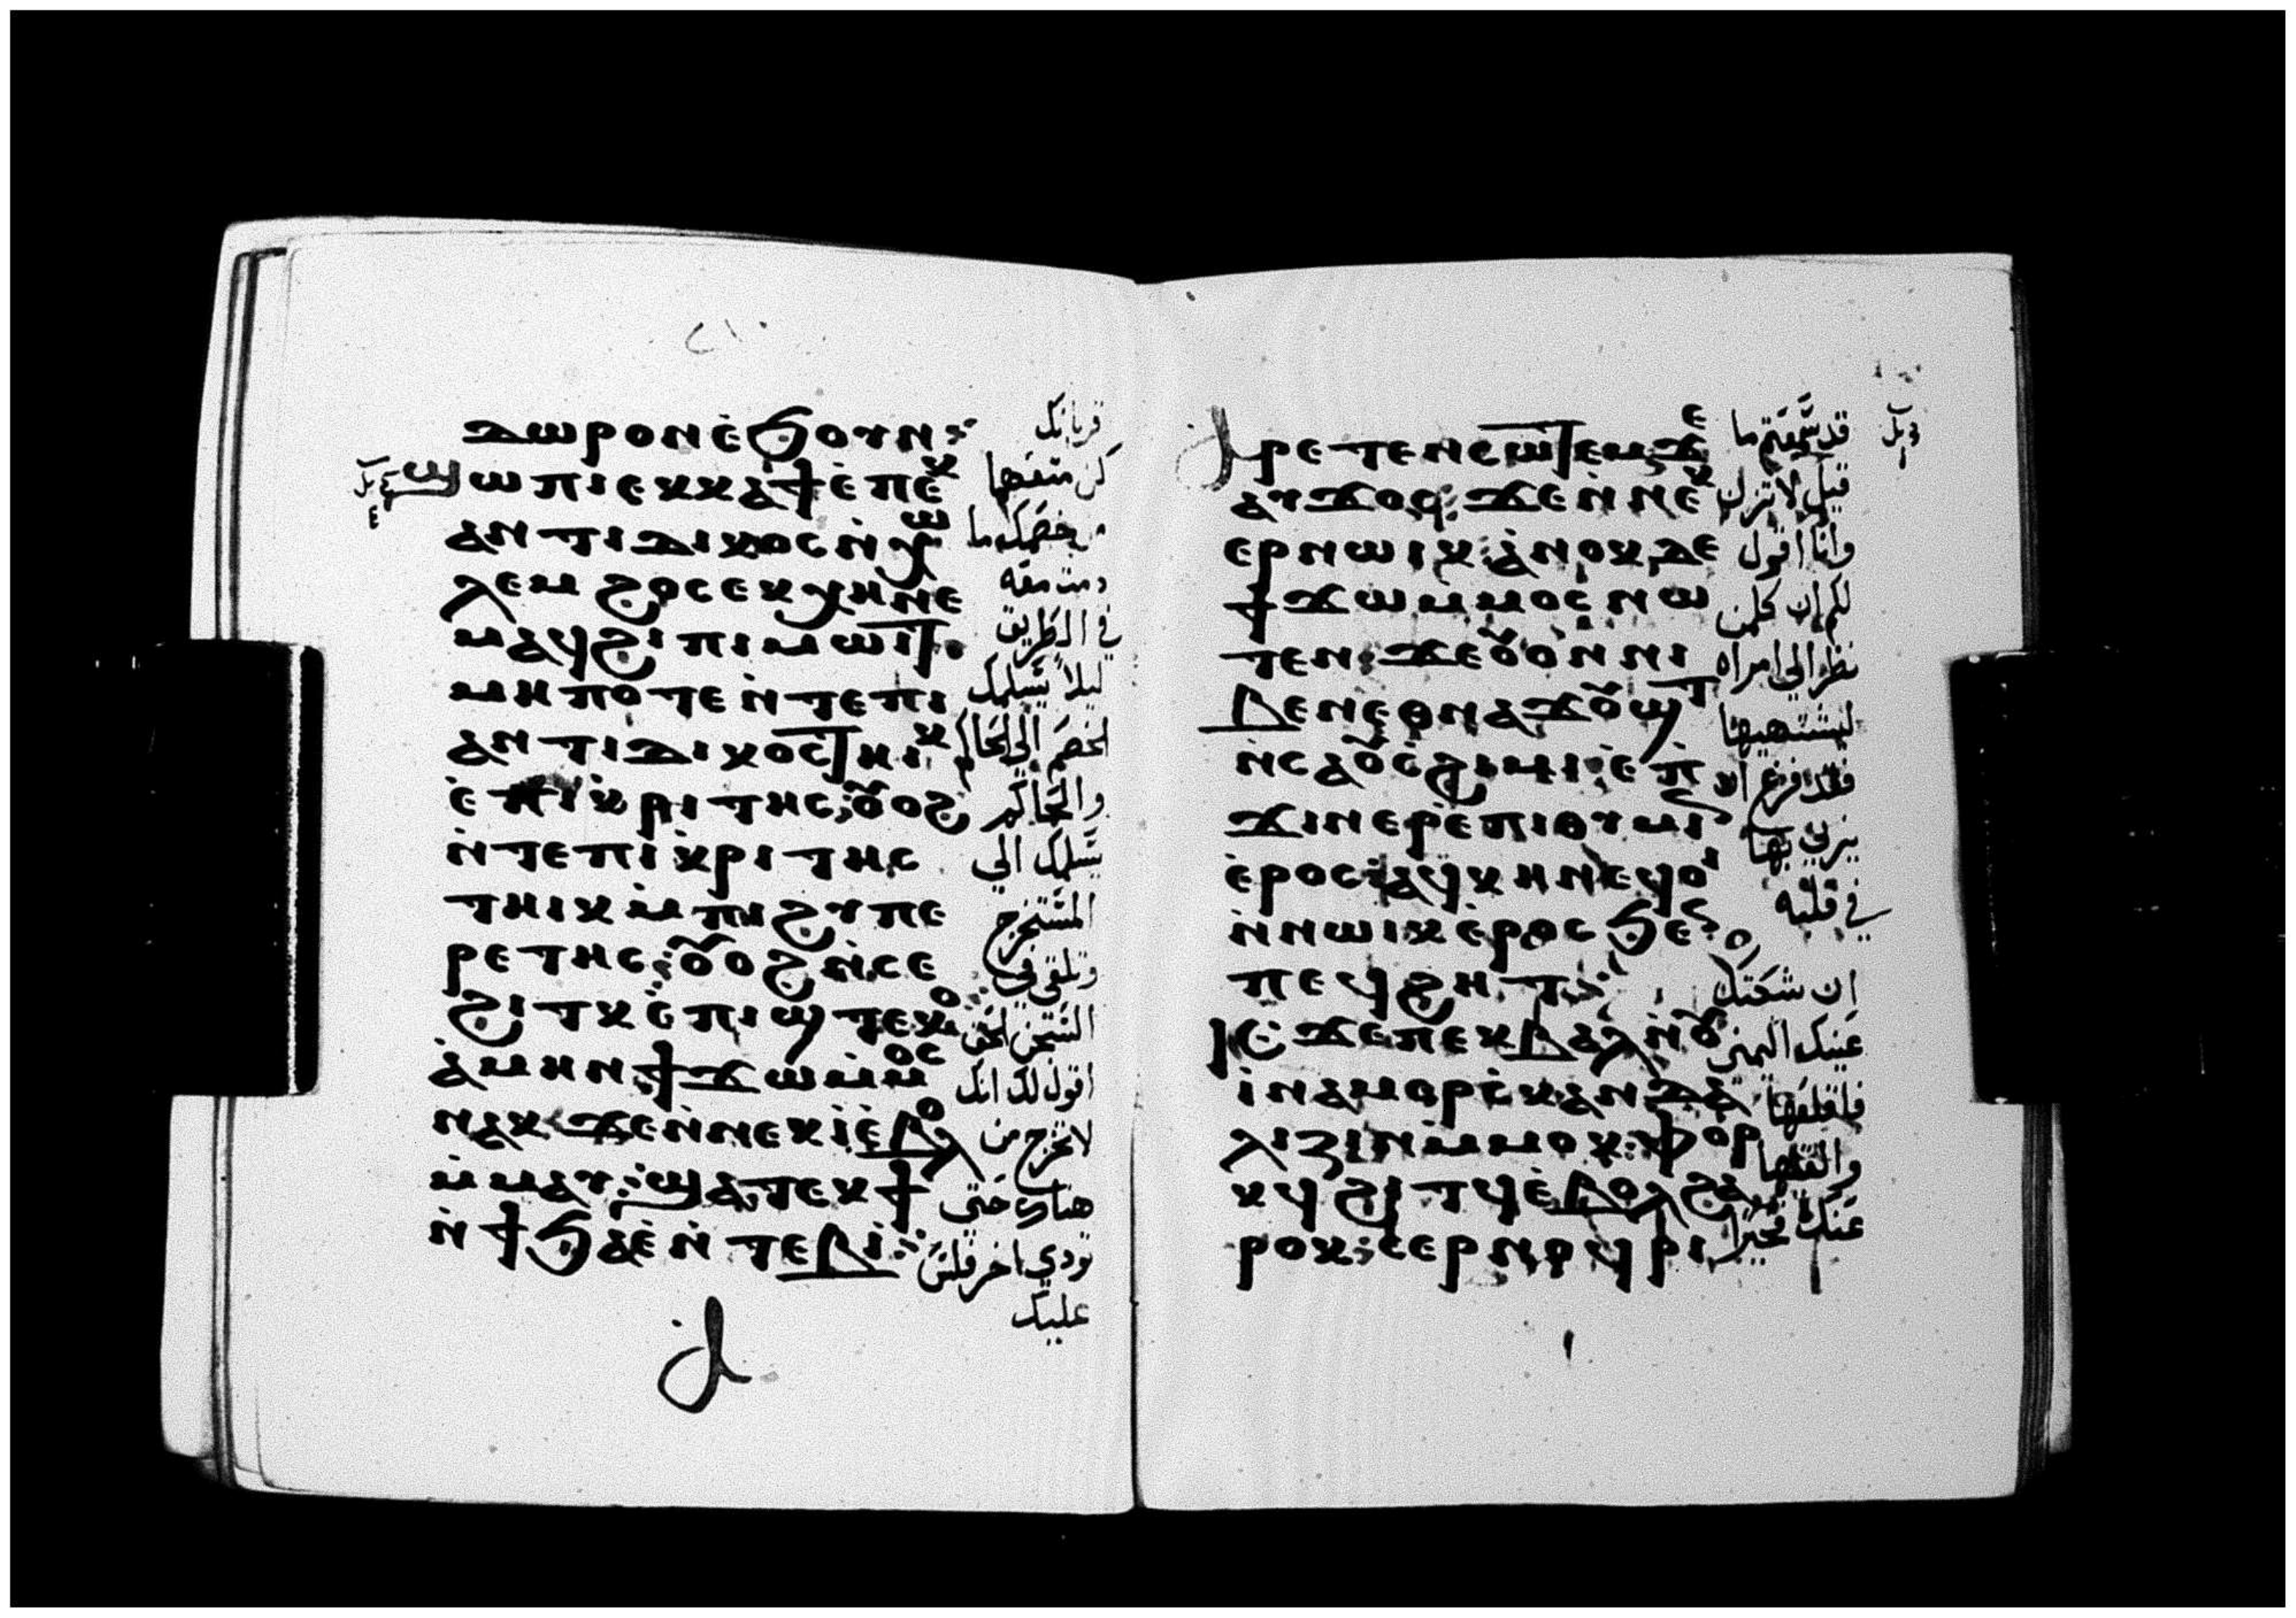 ⲇⲱⲣⲟⲛ ⲉ̀ϧⲟⲩⲛ:
ϣⲱⲡⲓ ⲉⲕⲕⲁϯ ⲉ̀ⲡⲉⲕ
ⲁⲛⲧⲓⲇⲓⲕⲟⲥ ⲛ̀ⲭⲱ
ⲗⲉⲙ ϩⲟⲥ ⲉⲕⲭⲏ ⲛⲉ
ⲙⲁϥ ϩⲓ ⲡⲓⲙⲱⲓⲧ.
ⲙⲏⲡⲟⲧⲉ ⲛ̀ⲧⲉ ⲡⲓ
ⲁⲛⲧⲓⲇⲓⲕⲟⲥ ⲧⲏⲓⲕ
ⲉ̀ⲡⲓⲕⲣⲓⲧⲏⲥ: ⲟⲩⲟϩ
ⲛ̀ⲧⲉ ⲡⲓⲕⲣⲓⲧⲏⲥ
ⲧⲏⲓⲕ ⲙ̀ⲡⲓϩⲩⲡⲉ
ⲣⲉⲧⲏⲥ: ⲟⲩⲟϩ ⲛ̀ⲥⲉ
ϩⲓⲧⲕ ⲉ̀ⲡⲓϣⲧⲉⲕⲟ:
ⲁ̀ⲙⲏⲛ ϯϫⲱ ⲙ̀ⲙⲟⲥ
ⲛⲁⲕ ϫⲉ ⲛ̀ⲛⲉⲕⲓ̀ ⲉ̀ⲃⲟⲗ
ⲙ̀ⲙⲁⲩ: ϣⲁⲧⲉⲕϯ
ⲛ̀ϯϧⲁⲉ̀ ⲛ̀ⲧⲉⲃⲓ:
قربانك
كن متفهما
من خصمك ما
دمت معه
في الطريق
ليلا يسلمك
الخصم الي الحاكم
والحاكم
يسلمك الي
المستخرج
وتلقي في
السجن الحق
اقول لك انك
لا تخرج من
هناك حتي
تودي اخر فلس
عليك
ⲁⲣⲉⲧⲉⲛⲥⲱⲧⲉⲙ ϫⲉ
ⲁⲩϫⲟⲥ: ϫⲉ ⲛ̀ⲛⲉⲕ
ⲉⲣⲛⲱⲓⲕ: ⲁ̀ⲛⲟⲕ ⲇⲉ
ϯϫⲱ ⲙ̀ⲙⲟⲥ ⲛⲱ
ⲧⲉⲛ: ϫⲉ ⲟⲩⲟⲛ ⲛⲓ
ⲃⲉⲛ ⲉⲑⲛⲁϫⲟⲩϣⲧ
ⲛ̀ⲥⲁ ⲟⲩⲥϩⲓⲙⲓ: ⲉ̀ⲡ
ϫⲓⲛⲉⲣⲉ̀ⲡⲓⲑⲩⲙⲓⲛ
ⲉ̀ⲣⲟⲥ: ⲁϥⲕⲏⲛ ⲉϥⲟⲓ
ⲛ̀ⲛⲱⲓⲕ ⲉ̀ⲣⲟⲥ ϧⲉⲛ
ⲡⲉϥϩⲏⲧ:
ⲓⲥϫⲉ ⲡⲉⲕⲃⲁⲗ ⲛ̀ⲟⲩ
ⲓⲛⲁⲙ ⲉⲣⲥⲕⲁⲛⲇⲁ
ⲗⲓⲍⲓⲛ ⲙ̀ⲙⲟⲕ: ⲫⲟⲣ
ⲕϥ ϩⲓⲧϥ ⲉ̀ⲃⲟⲗ ϩⲁ
ⲣⲟⲕ: ⲥⲉⲣⲛⲟϥⲣⲓ
قد سمعتم ما
قيل لا تزن
وانا اقول
لكم ان كل من
نظر الي امراه
ليشتهيها
فقد فرغ ان
يزني بها
في قلبه
ان شكتك
عينك اليمني
فاقلعها
والقها
عنك فخيرا